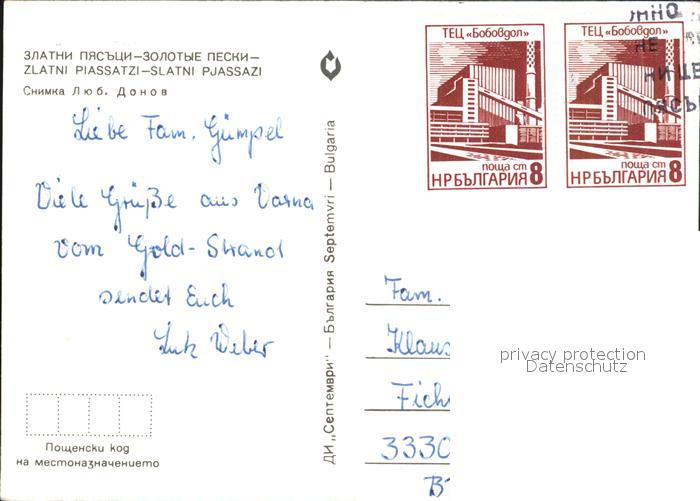 ЗЛАТНИ ПЯСЪЦИ—ЗОЛОТЫЕ ПЕСКИ—
ZLATNI PIASSATZI—SLATNI PJASSAZI
Снимка Люб. Донов
Liebe Fam. Gümpel
Viele Grüße aus Varna
vom Gold-Strand
sendet Euch
Weber
Пощенски код
на местоназначението
ДИ „Септември" — България Septemvri — Bulgaria
ТЕЦ «Бобовдол»
поща ст
НР БЪЛГАРИЯ 8
ТЕЦ «Бобовдол»
поща ст
НР БЪЛГАРИЯ 8
Fam.
Klaus
Fich
3330
privacy protection
Datenschutz